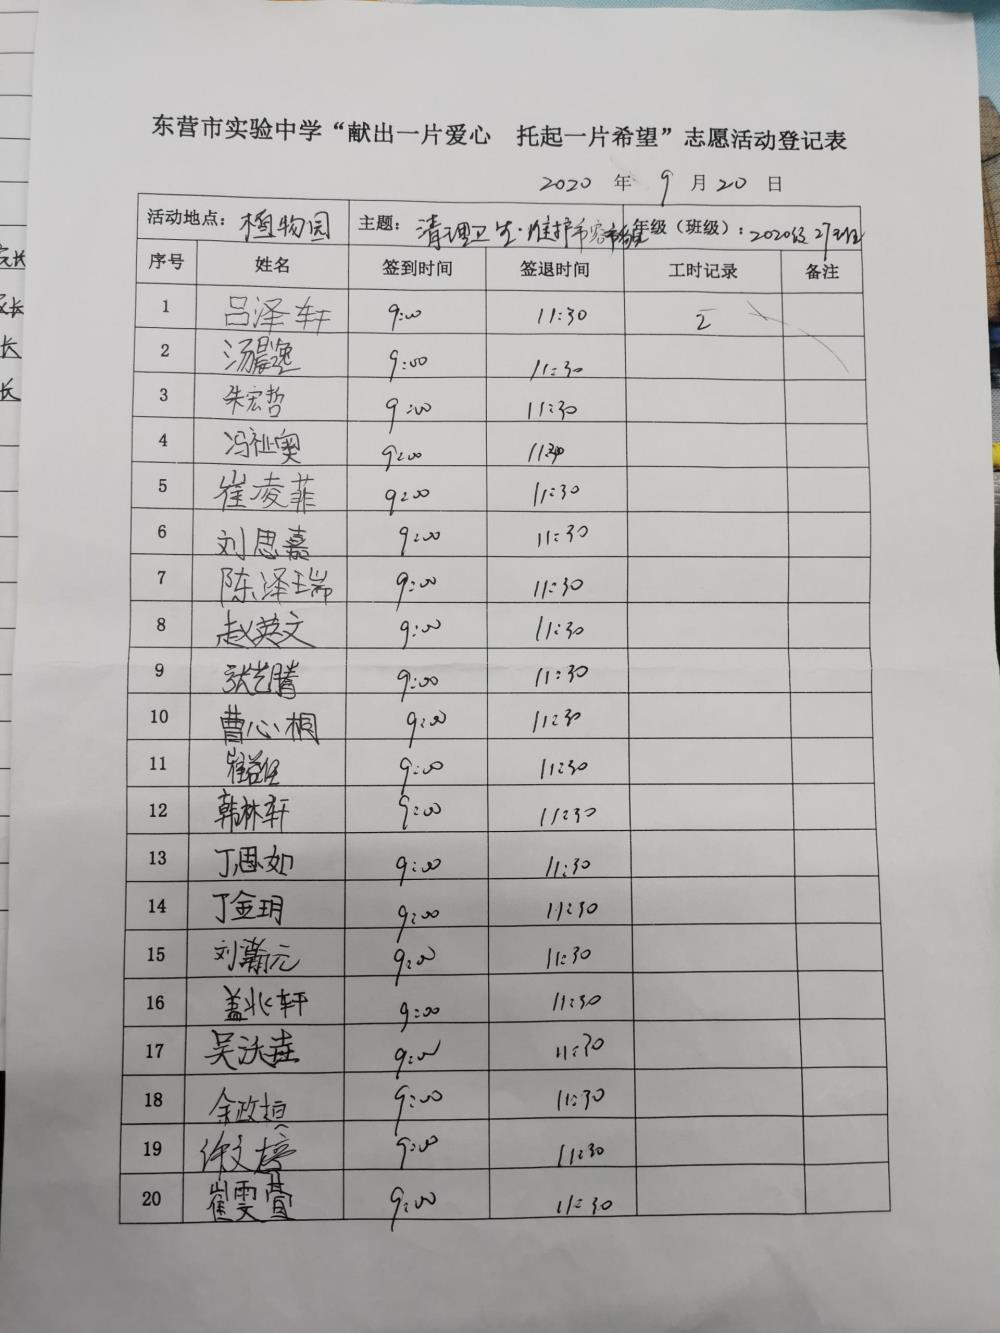 东营市实验中学“献出一片爱心 托起一片希望”志愿活动登记表
2020 年 9 月 20 日
活动地点：植物园 主题：清理卫生·维护市容 年级（班级）：2020级27班
序号 姓名 签到时间 签退时间 工时记录 备注
1 吕泽轩 9:00 11:30 2
2 汤晨逸 9:00 11:30
3 朱宏哲 9:00 11:30
4 冯祉奥 9:00 11:30
5 崔凌菲 9:00 11:30
6 刘思嘉 9:00 11:30
7 陈泽瑞 9:00 11:30
8 赵英文 9:00 11:30
9 张艺腾 9:00 11:30
10 曹心桐 9:00 11:30
11 崔益恺 9:00 11:30
12 韩林轩 9:00 11:30
13 丁思如 9:00 11:30
14 丁金玥 9:00 11:30
15 刘瀚元 9:00 11:30
16 盖兆轩 9:00 11:30
17 吴沃垚 9:00 11:30
18 余政桓 9:00 11:30
19 徐文 9:00 11:30
20 崔雯萱 9:00 11:30